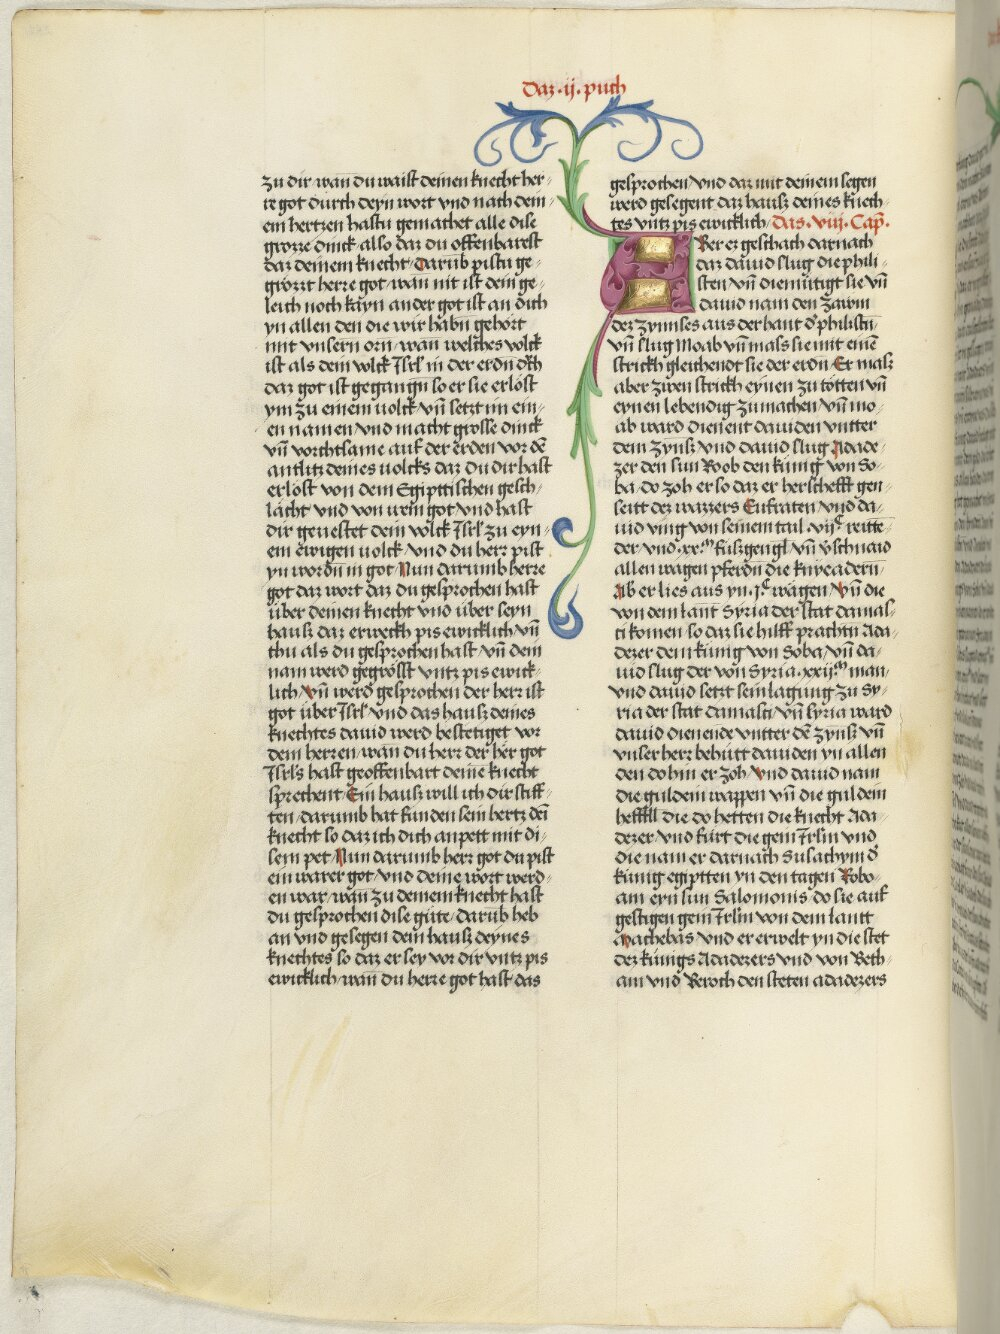 Daz · ij · puch
zu dir wan̄ du waist deinen knecht her-
re got durch deyn wort vnd nach dem-
ein hertzen hastu gemachet alle dise
grozze dinck also daz du offenbarest
daz deinem knecht Darūb pistu ge-
grözzt herre got wan̄ nit ist dem ge-
leich noch kayn ander got ist an dich
yn allen den die wir habn̄ gehört
mit vnsern orn wan̄ welches volck
ist als dein volck Isrl̄ in der erdn̄ d̄ch
daz got ist gegangn̄ so er sie erlöst
ym zu einem volck vn̄ setzt im ein-
en namen vnd macht grosse dinck
vn̄ vorchtsame auf der erden vor dē
antlitz deines volcks daz du dir hast
erlöst von dem Egipttischen gesch-
lächt vnd von irem got vnd hast
dir gevestet dein volck Isrl̄ zu eyn-
em ewigen volck vnd du herr pist
yn wordn̄ in got Nun darumb herre
got daz wort daz du gesprochen hast
über deinen knecht vnd über seyn
hausz daz erweckh pis ewicklich vn̄
thu als du gesprochen hast vn̄ dein
nam werd gegrösst vntz pis ewick-
lich vn̄ werd gesprochen der herr ist
got über Isrl̄ vnd das hausz deines
knechtes dauid werd bestetiget vor
dem herren wan̄ du herr der her got
Isrl̄s hast geoffenbart deinē knecht
sprechent Ein hausz will ich dir stiff-
ten darumb hat funden sein hertz dēi
knecht so daz ich dich anpett mit di-
sem pet Nun darumb herr got du pist
ein warer got vnd deine wort werd-
en war wan̄ zu deinem knecht hast
du gesprochen dise güte darūb heb
an vnd gesegen dem hausz deynes
knechtes so daz er sey vor dir vntz pis
ewicklich wan̄ du herre got hast das
gesprochen vnd daz mit deinem segen
werd gesegent daz hausz deines knech-
tes vntz pis ewicklich Das · viij · Cap̄.
Aber er geschach darnach
daz dauid slug die phili-
sten vn̄ diemütigt sie vn̄
dauid nam den zawm
dez zynnses aus der hant d' philisti-
vn̄ slug Moab vn̄ mass sie mit einē
strickh gleichendt sie der erdn̄ Er masz
aber zwen strickh eynen zu tötten vn̄
eynen lebendig zu machen vn̄ mo-
ab ward dienent dauiden vntter
dem zynsz vnd dauid slug Adade-
zer den sun Roob den künig von So-
ba do zoh er so daz er herschefft gen-
seitt dez wazzers Eufraten vnd da-
uid ving von seinem tail · vijᶜ · reitte-
der vnd · xx·ᵐ fuszgengl̄ vn̄ v'schnaid
allen wagen pferdn̄ die knyeadern
Ab er lies aus yn · jᶜ wägen Vn̄ die
von dem lant Syria der stat damas-
ti komen so daz sie hilff prachtn̄ Ada-
dezer dem künig von Soba vn̄ da-
uid slug der von Syria · xxij·ᵐ man
vnd dauid setzt sein lägung zu Sy-
ria der stat damasti vn̄ syria ward
dauid dienende vntter dē zynsz vn̄
vnser herr behütt dauiden yn allen
den dohin er zoh Vnd dauid nam
die guldein wappen vn̄ die guldein
die do hetten die knecht Ada-
dezer vnd fürt die gein Irl̄m vnd
die nam er darnach Susachym d'
künig egiptten yn den tagen Robo-
am ern sun Salomonis do sie auf
gestigen gein Irl̄m von dem lantt
Machebas vnd er erwelt yn die stet
dez künigs Adadezers vnd von Beth-
am vnd Beroch den steten adadezers